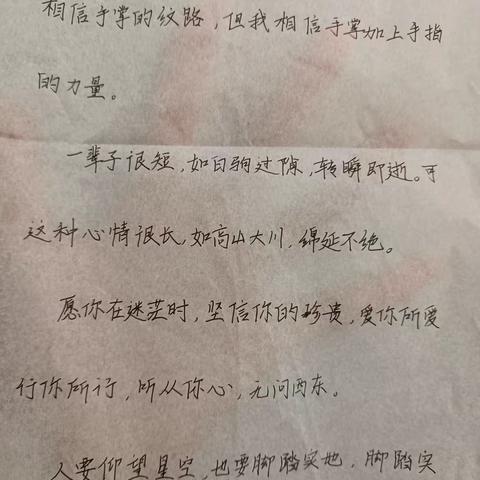 相信手掌的纹路，但我相信手掌加上手指
的力量。
一辈子很短，如白驹过隙，转瞬即逝。可
这种心情很长，如高山大川，绵延不绝。
愿你在迷茫时，坚信你的珍贵，爱你所爱
行你所行，听从你心，无问西东。
人要仰望星空，也要脚踏实地，脚踏实